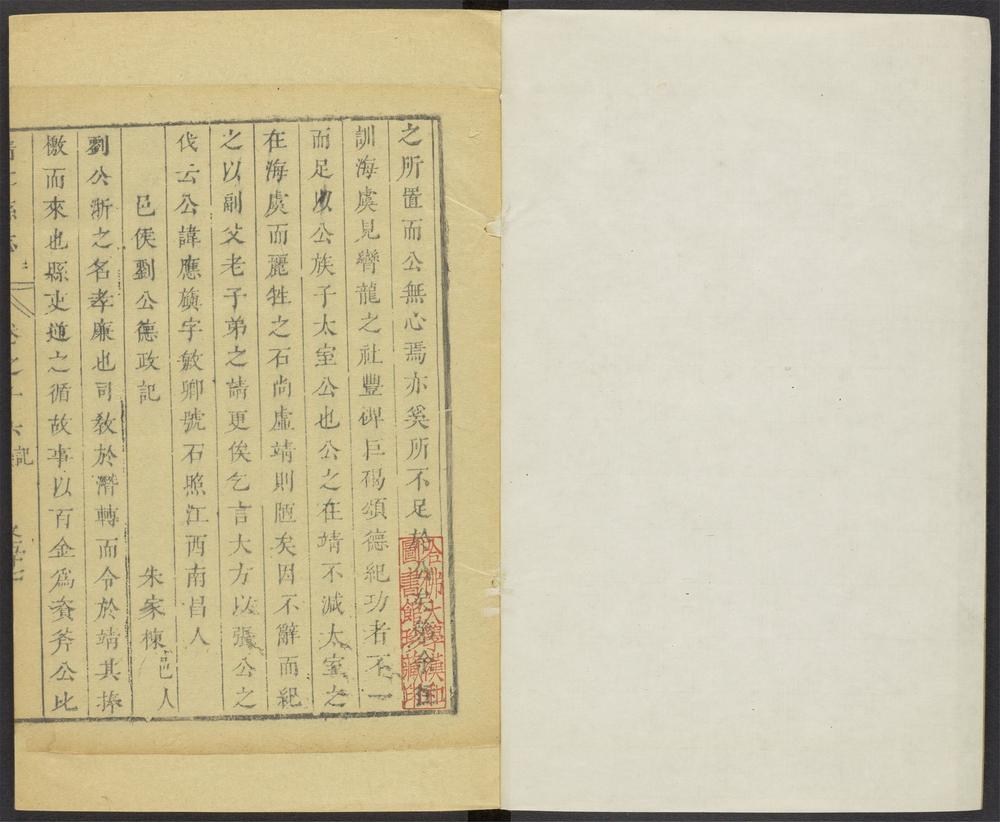 之所置而公無心焉亦奚所不足
訓海虞見彎龍之社豐碑巨碣頌德紀功者不一
而足以公族子太室公也公之在靖不減太室之
在海虞而麗牲之石尚虛靖則陋矣因不辭而紀
之以副父老子弟之請更俟乞言大方以張公之
伐云公諱應旗字敏卿號石照江西南昌人
邑侯劉公德政記 朱家棟邑人
劉公浙之名孝廉也司教於潛轉而令於靖其捧
檄而來也縣吏道之循故事以百金爲資斧公比
卷之十六 記
哈佛大學漢和
圖書館珍藏印